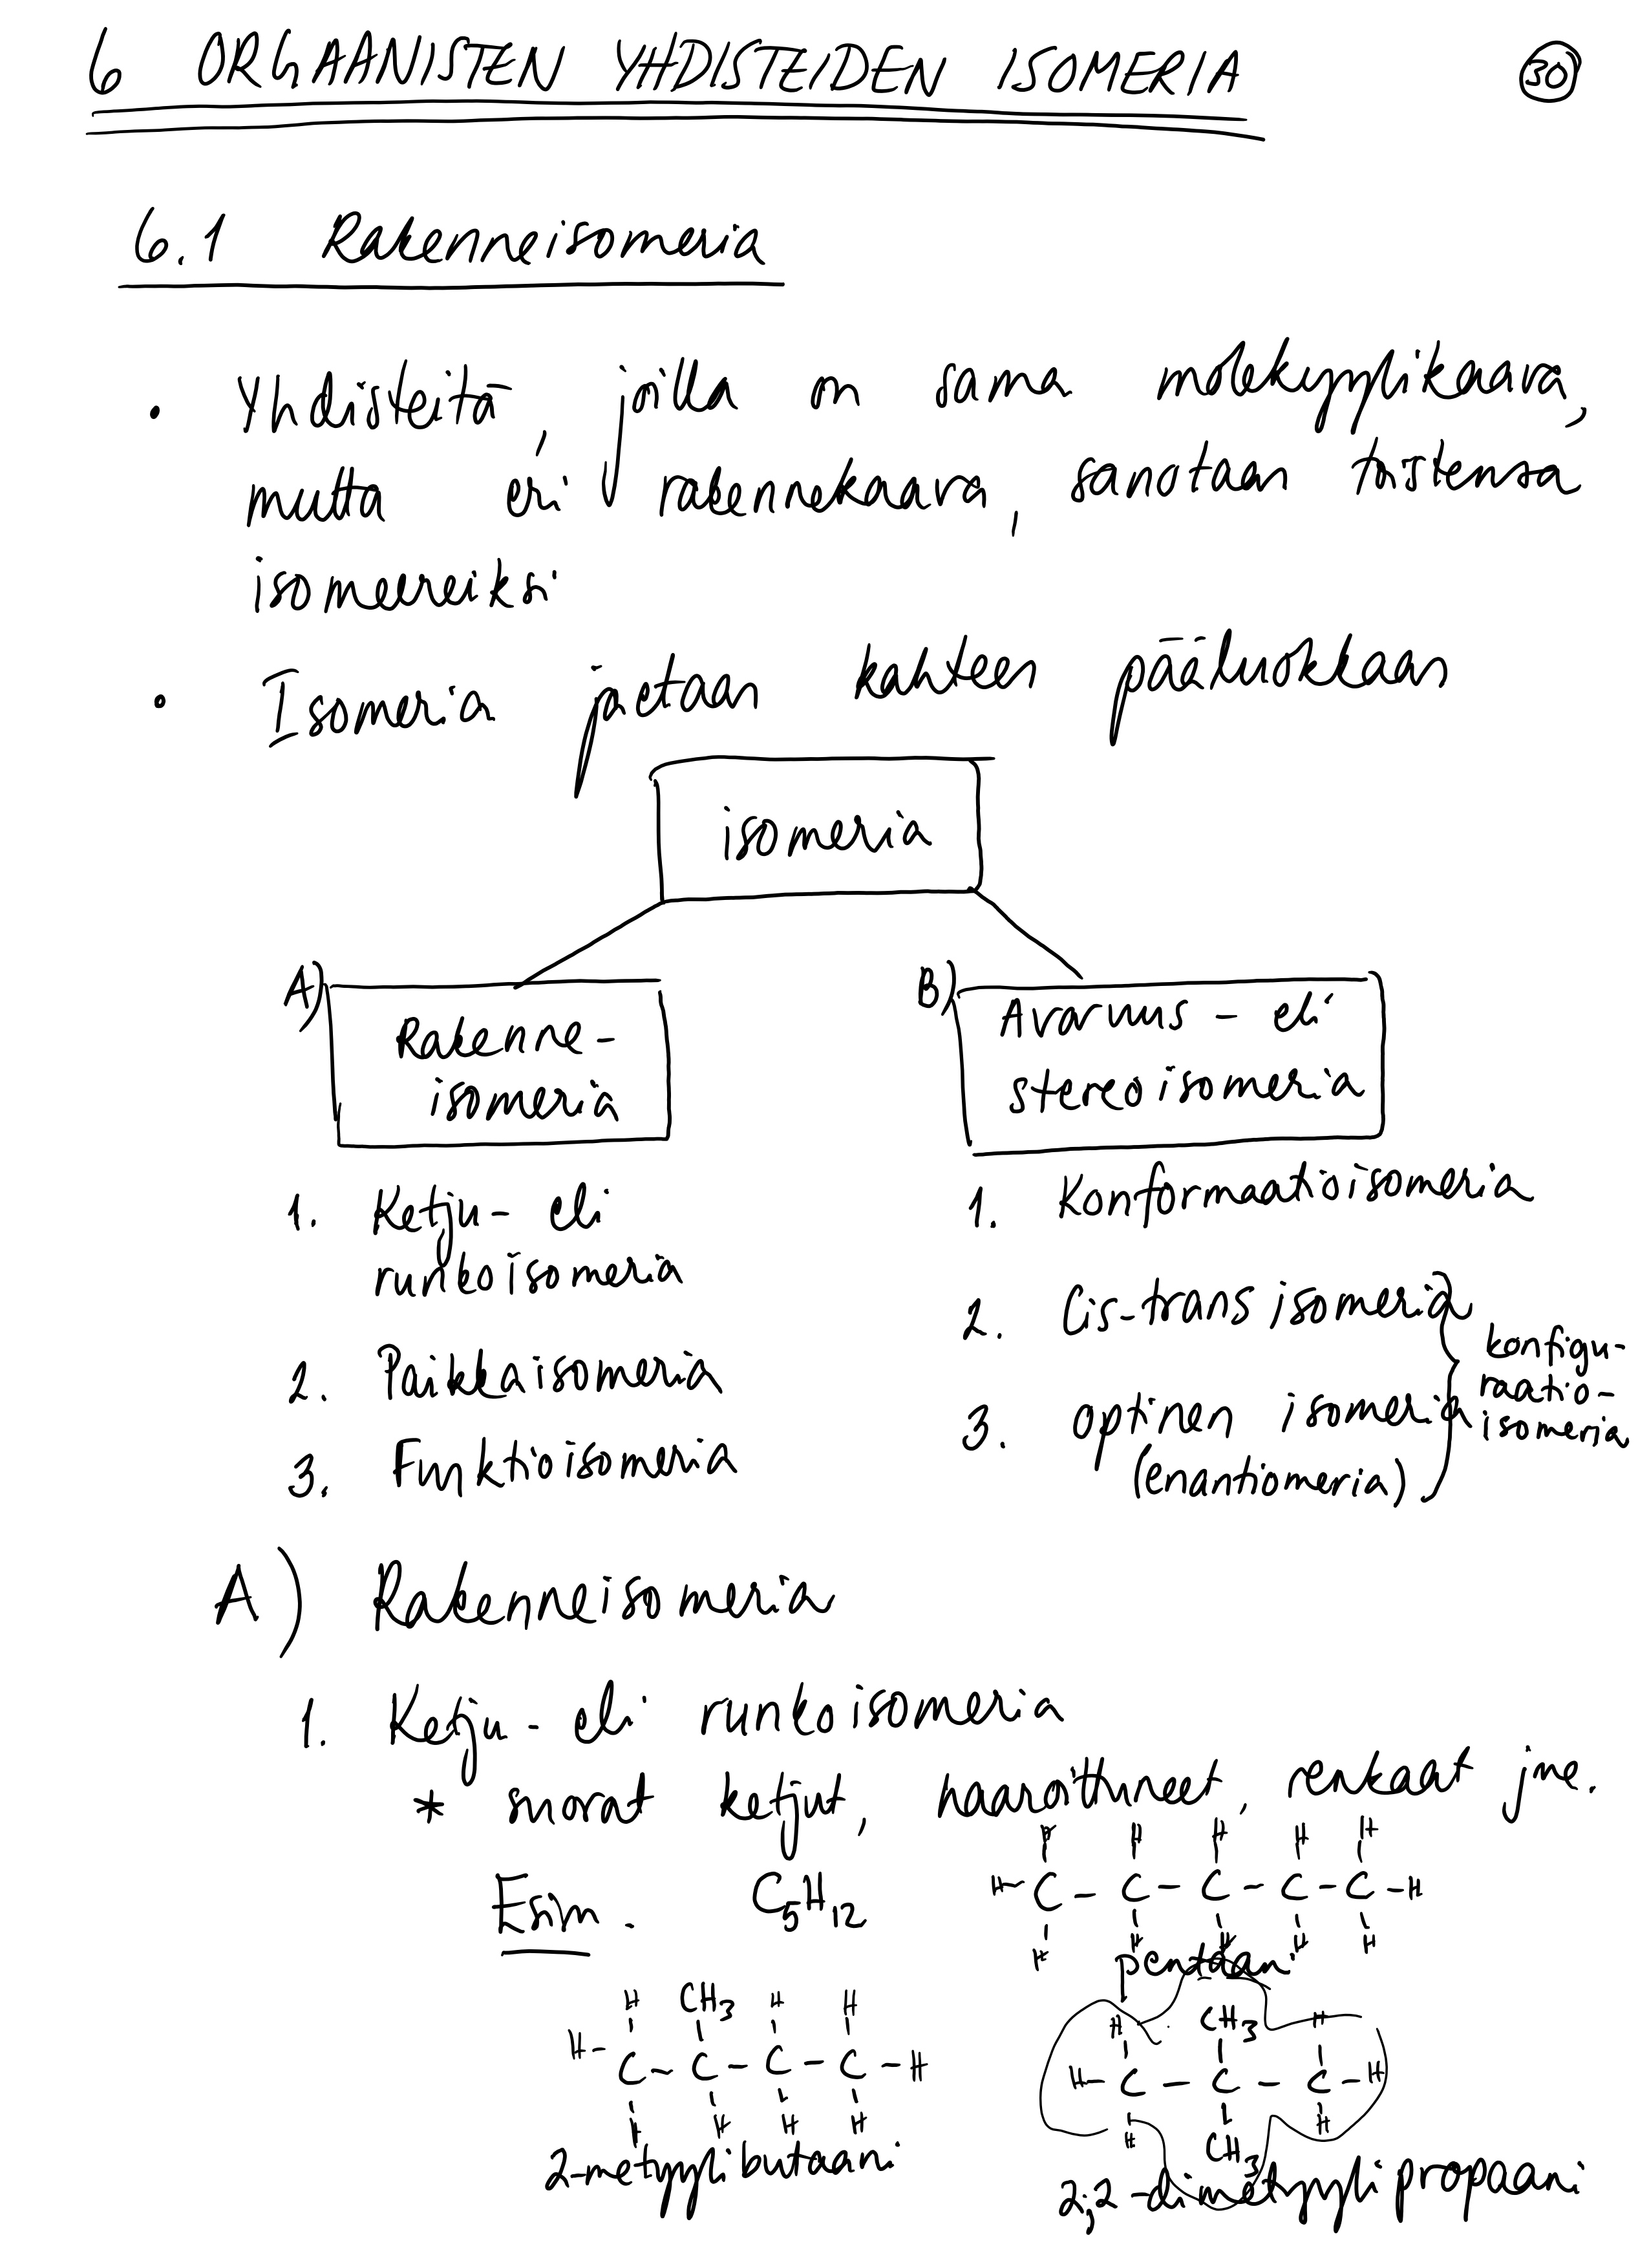 6 ORGAANISTEN YHDISTEIDEN ISOMERIA 30
6.1 Rakenneisomeria
• Yhdisteitä, joilla on sama molekyylikaava,
mutta eri rakennekaava, sanotaan toistensa
isomeereiksi
• Isomeria jaetaan kahteen pääluokkaan
isomeria
A) Rakenne-
isomeria
B) Avaruus- eli
stereoisomeria
1. Ketju- eli
runkoisomeria
2. Paikkaisomeria
3. Funktioisomeria
1. Konformaatioisomeria
2. Cis-trans isomeria
3. optinen isomeria
(enantiomeria)
konfigu-
raatio-
isomeria
A) Rakenneisomeria
1. Ketju- eli runkoisomeria
* suorat ketjut, haaroittuneet, renkaat jne.
Esim. C5H12
H H H H H
H-C-C-C-C-C-H
H H H H H
pentaani
H CH3 H H
H-C-C-C-C-H
H H H H
2-metyylibutaani
H CH3 H
H-C-C-C-H
H CH3 H
2,2-dimetyylipropaani